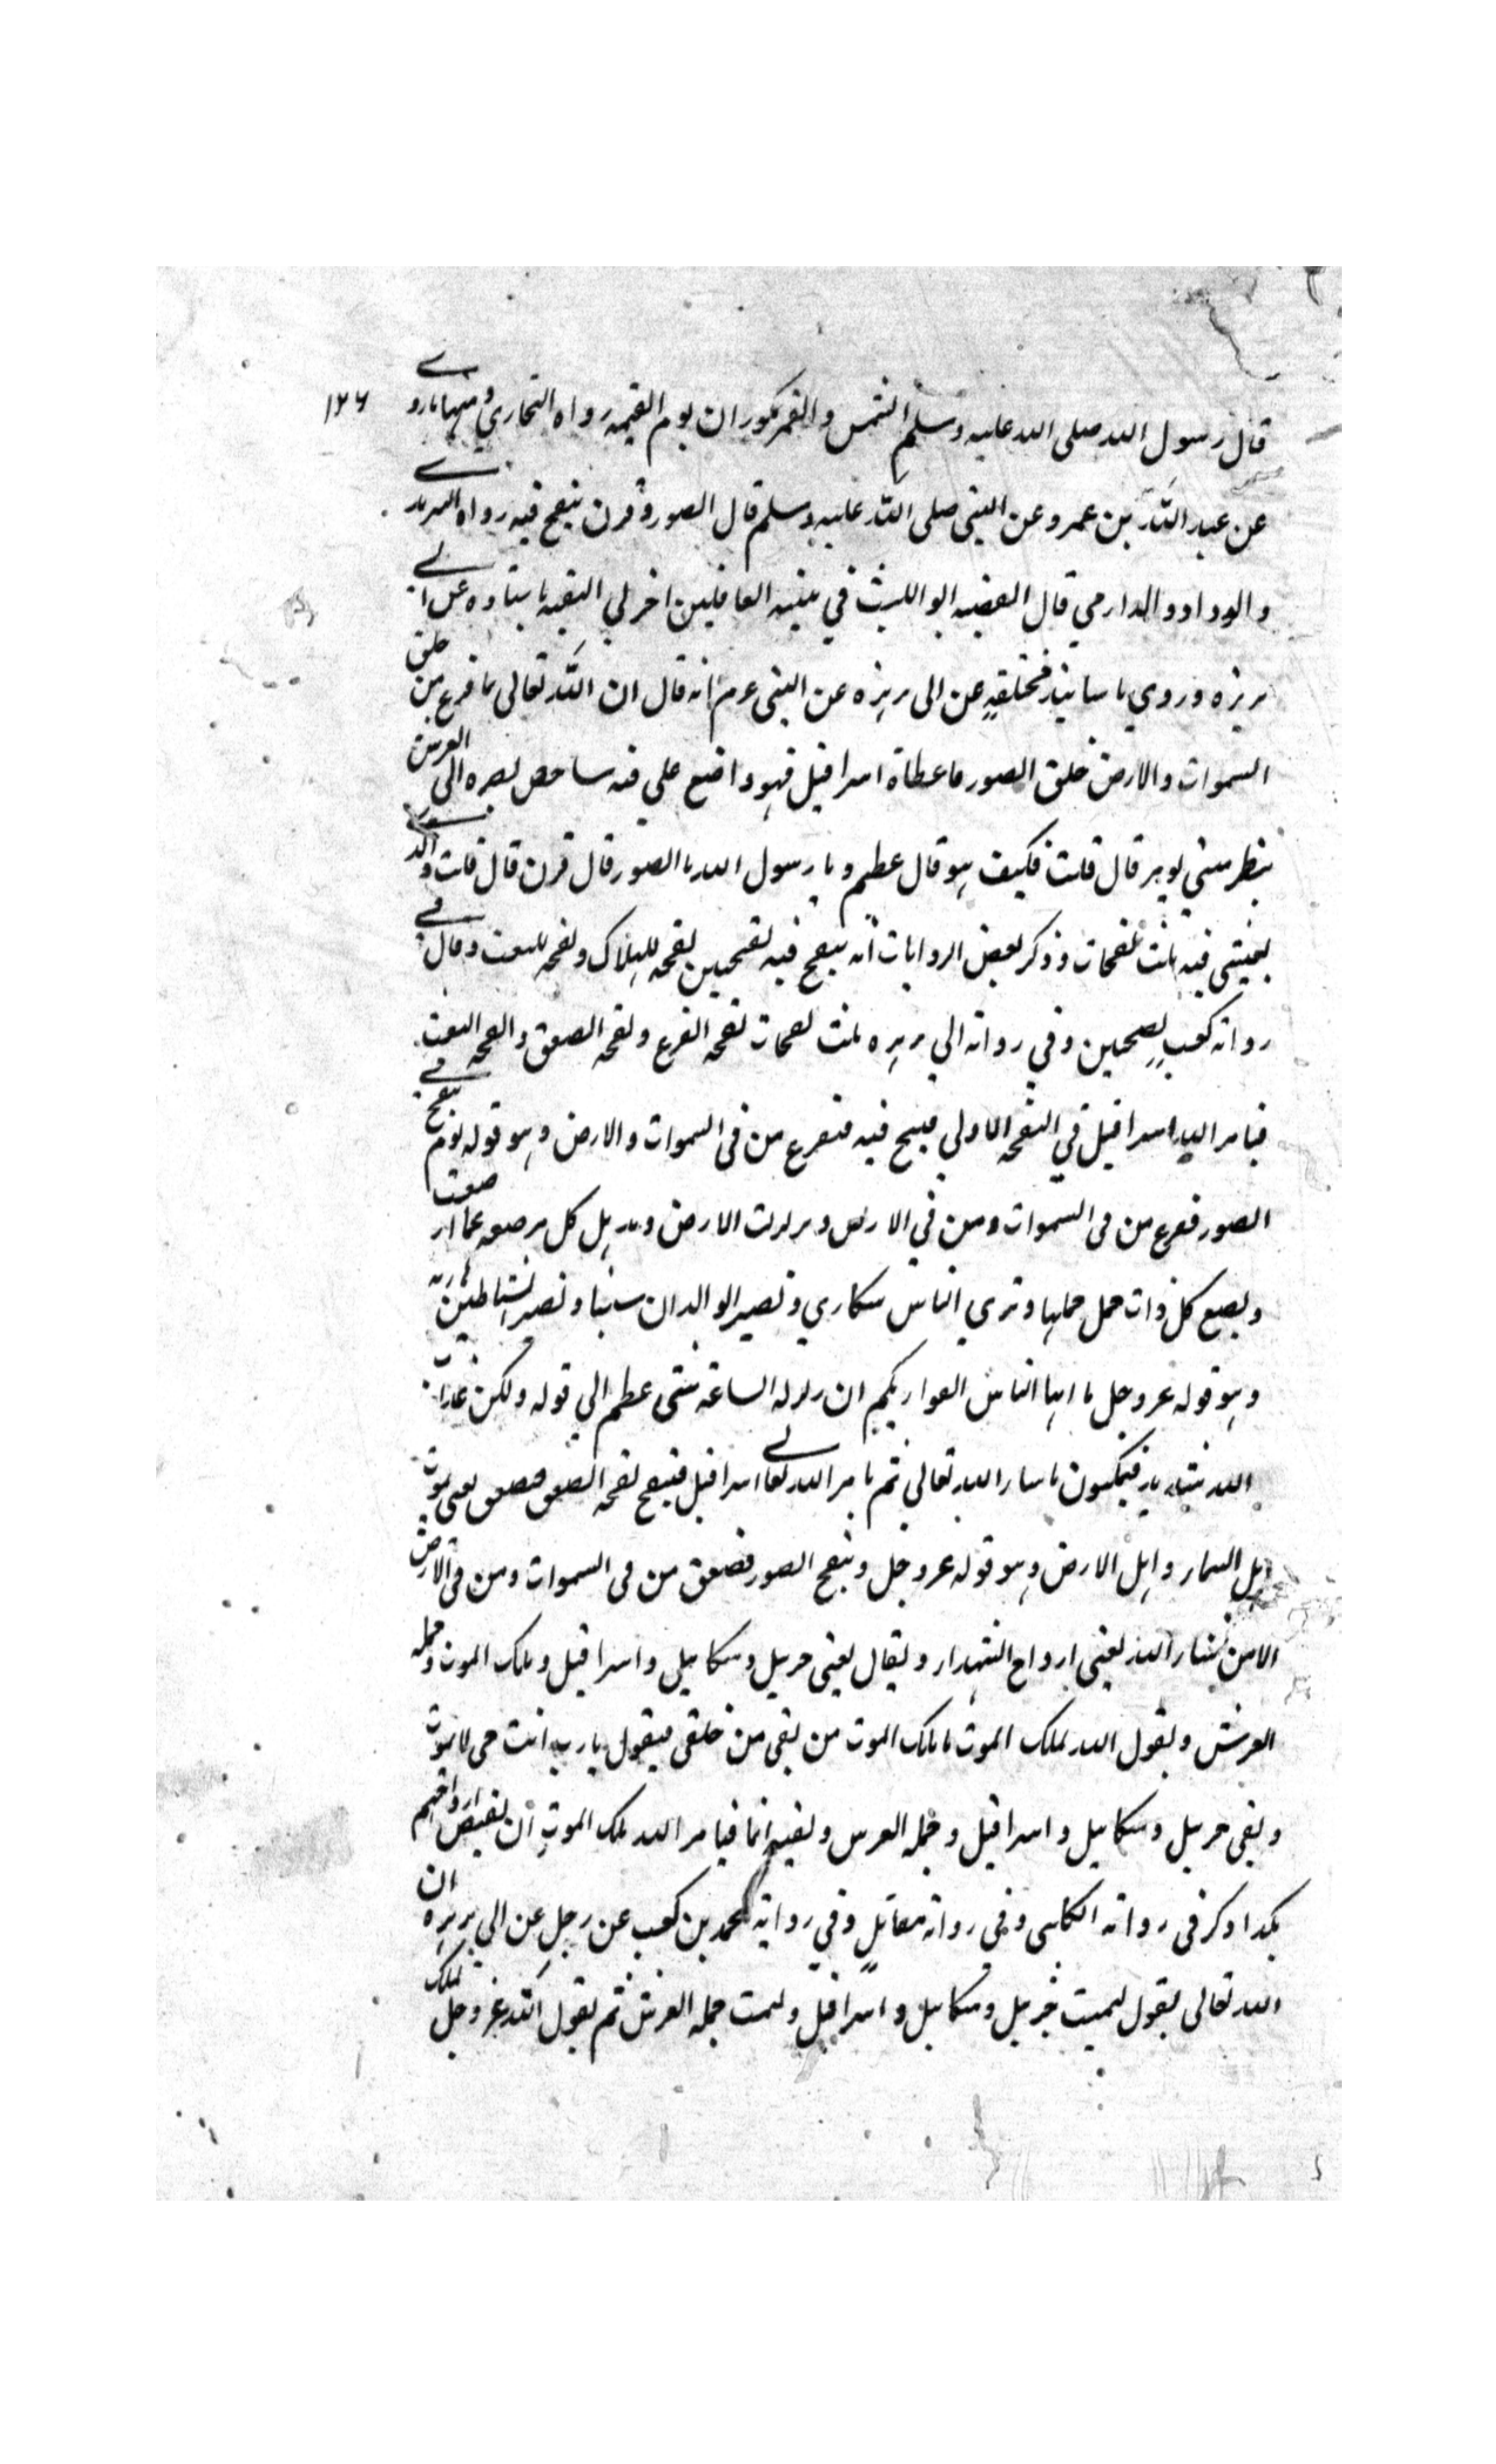 قال رسول الله صلى الله عليه وسلم الشمس والقمر مكوران يوم القيمه رواه البخاري ومنها ما روي
١٢٦
عن عبد الله بن عمرو عن النبي صلى الله عليه وسلم قال الصور قرن ينفخ فيه رواه الترمدي
والوداود والدارمي قال الفقيه ابو الليث في تنبيه الغافلين اخبرلي الثقيه باسناده عن ابي
هريره وروي باسانيد مختلفة عن ابي هريره عن النبي عم انه قال ان الله تعالى لما فرغ من خلق
السموات والارض خلق الصور فاعطاه اسرافيل فهو واضع على فيه شاخص بصره الى العرش
ينظر متي يومر قال قلت فكيف هو قال عظيم و يا رسول الله ما الصور قال قرن قال قلت
فيه ثلث نفخات وذكر بعض الروايات انه ينفخ فيه نفختين نفخه للهلاك ونفخه للبعث وقال في
روايه كعب نفختين وفي روايه ابي هريره ثلث نفخات نفخه الفزع ونفخه الصعق والنفخه البعث
فيامر الله اسرافيل في النفخه الاولي فينفخ فيه فيفزع من في السموات والارض وهو قوله يوم ينفخ في
الصور ففزع من في السموات ومن في الارض وتزلزلت الارض وتذهل كل مرضعه عما ارضعت
ويضع كل ذات حمل حملها وتري الناس سكاري وتصير الوالدان شيبا وتصير الشياطين هاربه
وهو قوله عز وجل يا ايها الناس اتقوا ربكم ان زلزله الساعه شئ عظيم الي قوله ولكن عذاب
الله شديد فيمكثون ما شاء الله تعالي ثم يامر الله تعالى اسرافيل فينفخ نفخه الصعق فصعق يعني يموت
اهل السماء واهل الارض وهو قوله عز وجل ونفخ الصور فصعق من في السموات ومن في الارض
الا من شاء الله يعني ارواح الشهداء ويقال يعني جبريل وميكاييل واسرافيل وملك الموت وحمله
العرش ويقول الله لملك الموت يا ملك الموت من بقي من خلقي فيقول يا رب انت حي لا يموت
وبقي جبريل وميكاييل واسرافيل وحمله العرش وبقيت انا فيامر الله ملك الموت ان يقبض ارواحهم
هكذا ذكر في روايه الكلبي وفي روايه مقاتل وفي روايه محمد بن كعب عن رجل عن ابي هريره ان
الله تعالى يقول ليمت جبريل وميكاييل واسرافيل وليمت حمله العرش ثم يقول الله عز وجل لملك